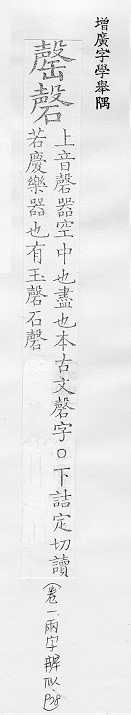 增廣字學舉隅
罄磬
上音磬器空中也盡也本古文磬字○下詰定切讀
若慶樂器也有玉磬石磬
(卷一兩字辨似、P38)